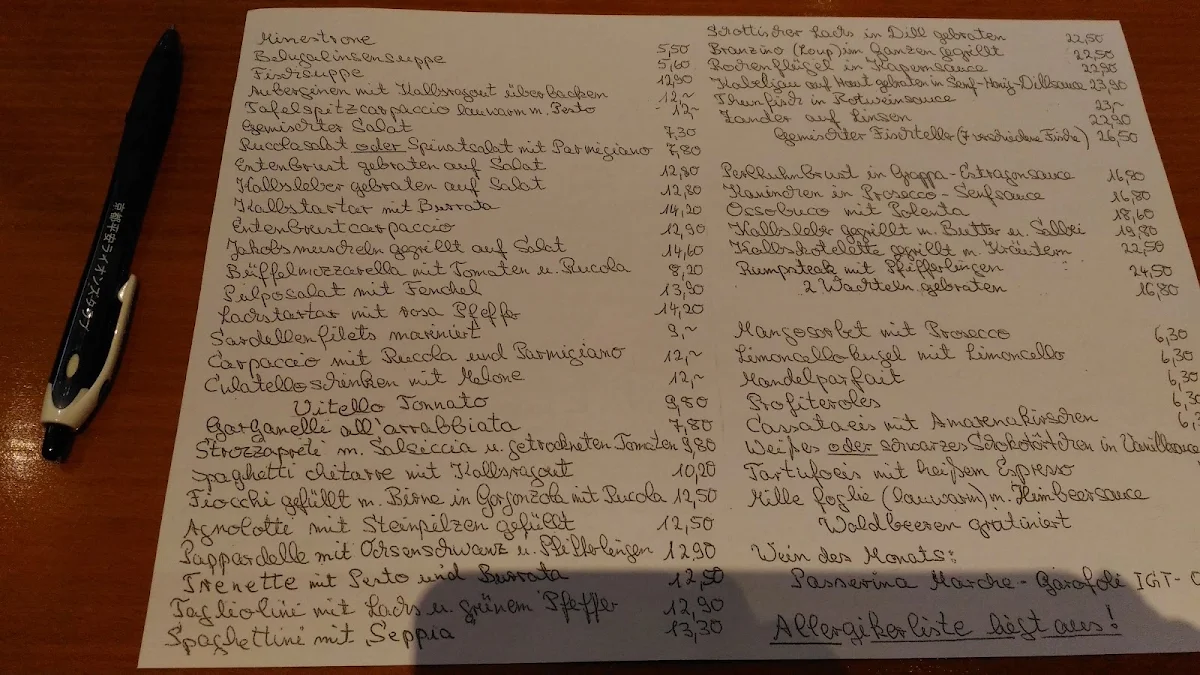 京都平安ライオンズクラブ
Minestrone 5,50
Belugalinsensuppe 5,60
Fischsuppe 12,90
Auberginen mit Kalbsragout überbacken 12,~
Tafelspitzcarpaccio lauwarm m. Pesto 12,~
Gemischter Salat 7,30
Rucolasalat oder Spinatsalat mit Parmigiano 7,80
Entenbrust gebraten auf Salat 12,80
Kalbsleber gebraten auf Salat 12,80
Kalbstartar mit Burrata 14,20
Entenbrustcarpaccio 12,90
Jakobsmuscheln gegrillt auf Salat 14,60
Büffelmozzarella mit Tomaten u. Rucola 8,20
Pulposalat mit Fenchel 13,90
Lachstartar mit rosa Pfeffer 14,20
Sardellenfilets mariniert 9,~
Carpaccio mit Rucola und Parmigiano 12,~
Culatelloschinken mit Melone 12,~
Vitello Tonnato 9,80
Garganelli all'arrabbiata 7,80
Strozzapreti m. Salsiccia u. getrockneten Tomaten 9,80
Spaghetti chitarre mit Kalbsragout 10,20
Fiocchi gefüllt m. Birne in Gorgonzola mit Rucola 12,50
Agnolotti mit Steinpilzen gefüllt 12,50
Pappardelle mit Ochsenschwanz u. Pfifferlingen 12,90
Trenette mit Pesto und Burrata 12,50
Tagliolini mit Lachs u. grünem Pfeffer 12,90
Spaghettini mit Seppia 13,30
Schottischer Lachs in Dill gebraten 22,50
Branzino (Loup) im Ganzen gegrillt 22,50
Rochenflügel in Kapernsauce 22,90
Kabeljau auf Haut gebraten in Senf-Honig-Dillsauce 23,90
Thunfisch in Rotweinsauce 23,~
Zander auf Linsen 22,90
Gemischter Fischteller (7 verschiedene Fische) 26,50
Perlhuhnbrust in Grappa-Estragonsauce 16,80
Kaninchen in Prosecco-Senfsauce 16,80
Ossobuco mit Polenta 18,60
Kalbsleber gegrillt m. Butter u. Salbei 19,80
Kalbskotelette gegrillt m. Kräutern 22,50
Rumpsteak mit Pfifferlingen 24,50
2 Wachteln gebraten 16,80
Mangosorbet mit Prosecco 6,30
Limoncellokugel mit Limoncello 6,30
Mandelparfait 6,30
Profiteroles 6,3
Cassataeis mit Amarenakirschen 6,
Weißes oder schwarzes Schokotörtchen in Vanillesauce
Tartufoeis mit heißem Espresso
Mille foglie (lauwarm) m. Himbeersauce
Waldbeeren gratiniert
Wein des Monats:
Passerina Marche - Garofoli IGT-
Allergikerliste liegt aus!